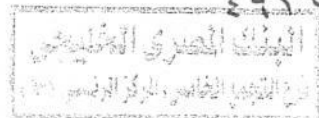 البنك المصرى الخليجى
فرع التجمع الخامس المركز الرئيسى